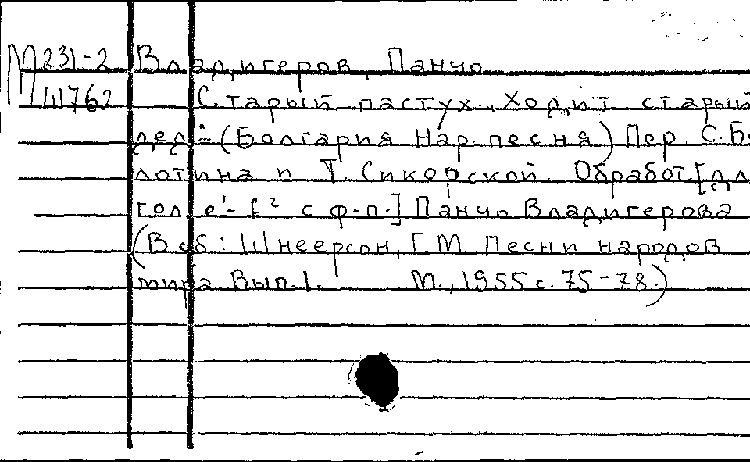 М 231-2 Владигеров, Панчо
Ш762 Старый пастух. Ходит старый
дед = (Болгария Нар. песня) Пер. С. Бо-
лотина и Т. Сикорской. Обработ [дл
гол е'- f² с ф-п.] Панчо Владигерова
(В сб: Шнеерсон, Г.М. Песни народов
мира Вып. 1. М., 1955 с. 75-78.)